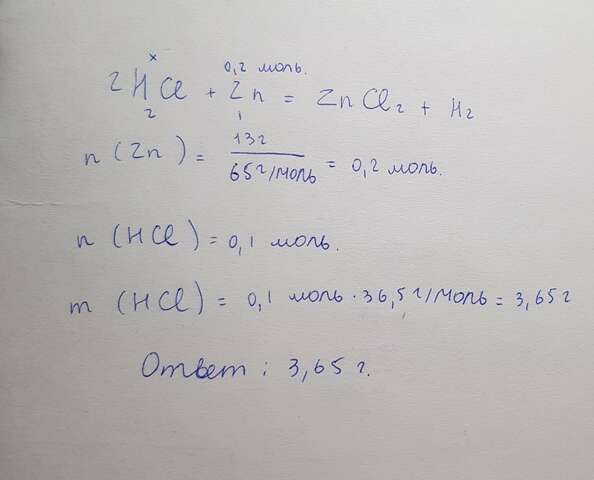 x 0,2 моль.
2HCl + Zn = ZnCl₂ + H₂
2 1
n (Zn) = 13г / 65г/моль = 0,2 моль.
n (HCl) = 0,1 моль.
m (HCl) = 0,1 моль · 36,5г/моль = 3,65г
Ответ : 3,65 г.